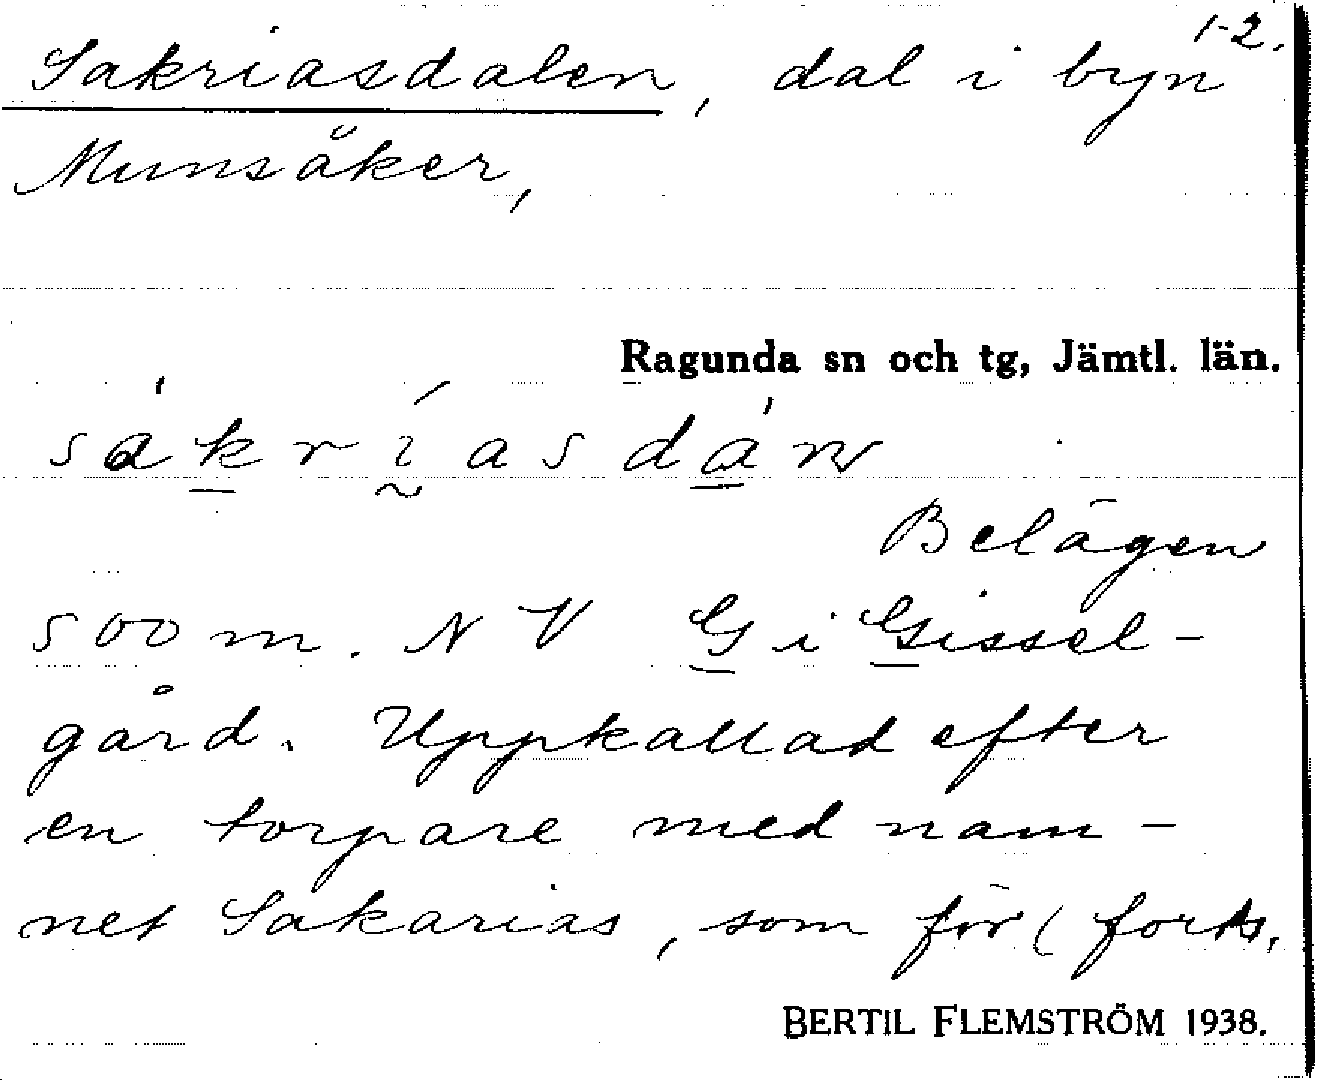 1-2.
Sakriasdalen, dal i byn
Munsåker,
Ragunda sn och tg, Jämtl. län.
Belägen
500 m. NV G i Gissel-
gård. Uppkallad efter
en torpare med nam-
net Sakarias, som för (forts.
BERTIL FLEMSTRÖM 1938.